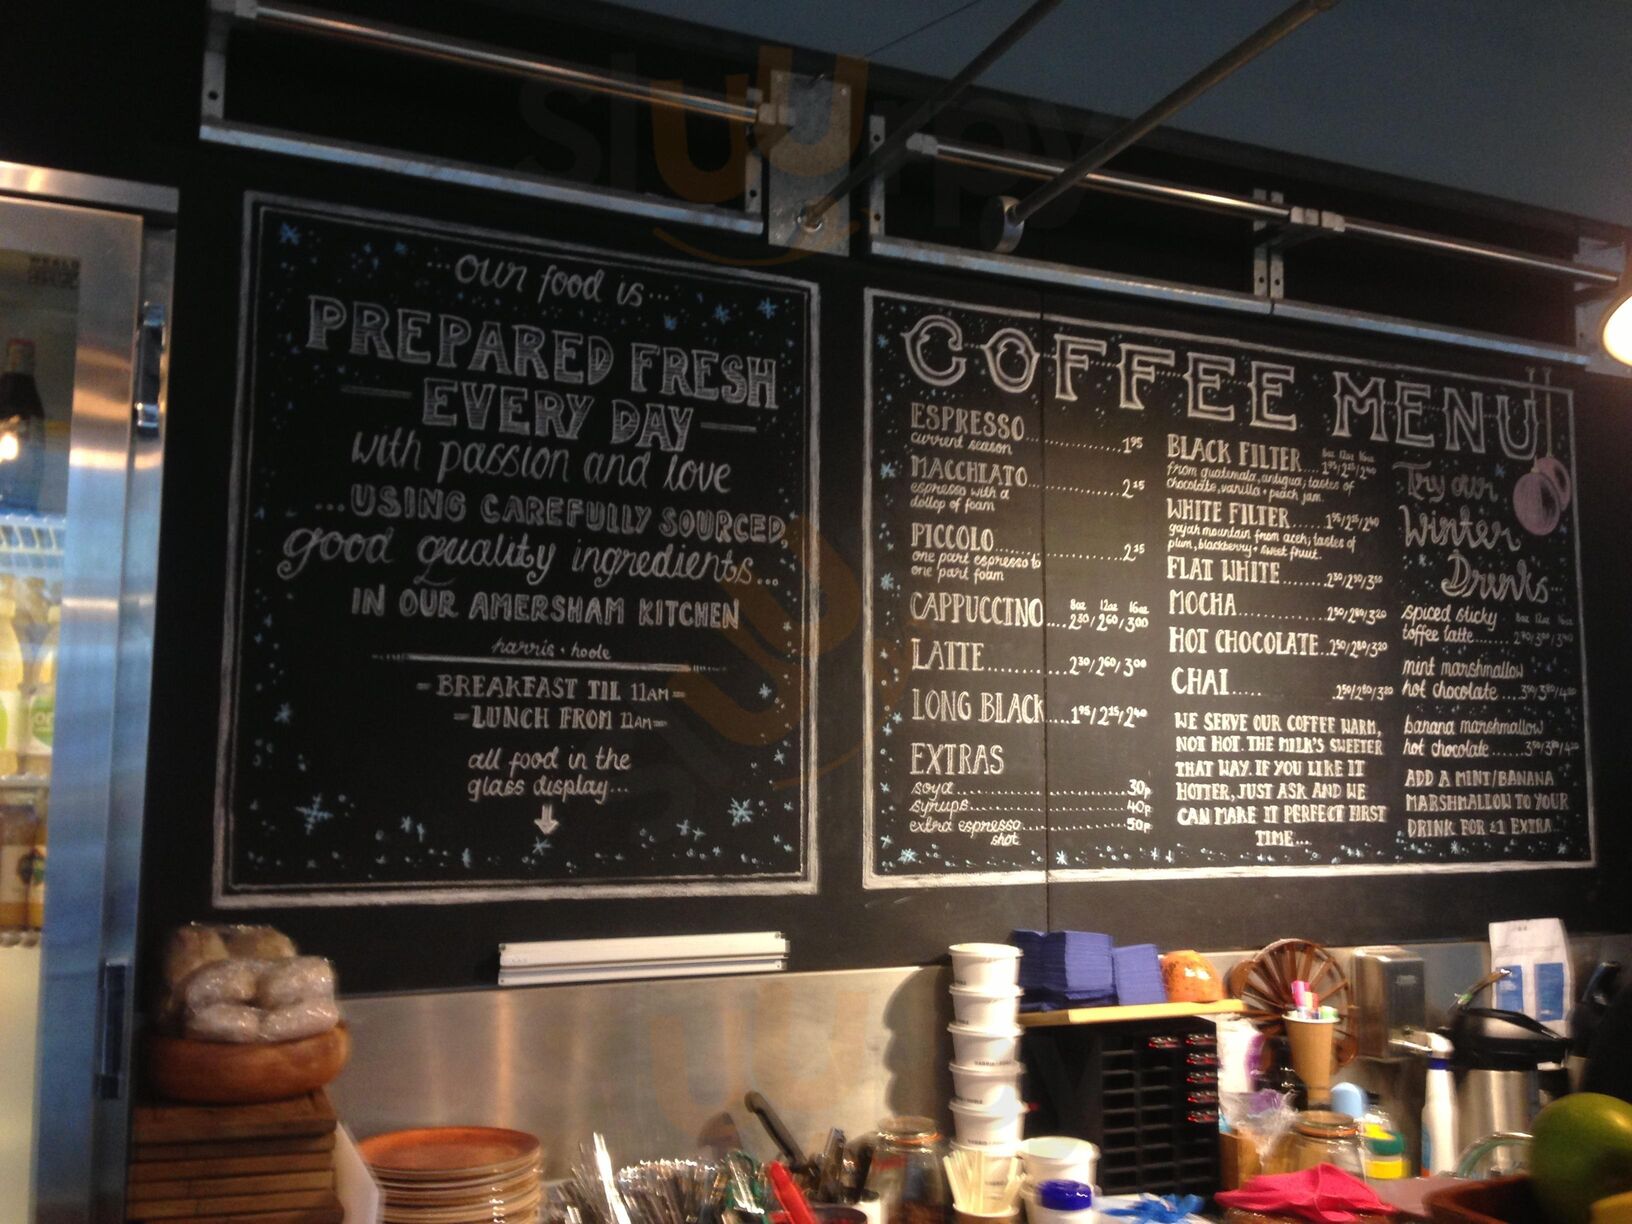 ...our food is...
PREPARED FRESH
EVERY DAY
with passion and love
...USING CAREFULLY SOURCED,
good quality ingredients...
IN OUR AMERSHAM KITCHEN
harris + hoole
BREAKFAST TIL 11AM
LUNCH FROM 11AM
all food in the
glass display...
COFFEE MENU
ESPRESSO
current season............1.95
MACCHIATO
espresso with a............2.15
dollop of foam
PICCOLO
one part espresso to............2.15
one part foam
8oz 12oz 16oz
CAPPUCCINO....2.30/2.60/3.00
LATTE............2.30/2.60/3.00
LONG BLACK....1.95/2.15/2.40
EXTRAS
soya............30p
syrups............40p
extra espresso............50p
shot
8oz 12oz 16oz
BLACK FILTER....1.95/2.15/2.40
from guatemala, antigua, tastes of
chocolate, vanilla + peach jam.
WHITE FILTER.....1.95/2.15/2.40
gajah mountain from aceh; tastes of
plum, blackberry + sweet fruit.
FLAT WHITE
MOCHA............2.50/2.80/3.20
HOT CHOCOLATE..2.50/2.80/3.20
CHAI.....2.50/2.80/3.20
WE SERVE OUR COFFEE WARM,
NOT HOT. THE MILK'S SWEETER
THAT WAY. IF YOU LIKE IT
HOTTER, JUST ASK AND WE
CAN MAKE IT PERFECT FIRST
TIME...
Try our
Winter
Drinks...
spiced sticky 8oz 12oz 16oz
toffee latte
mint marshmallow
hot chocolate
banana marshmallow
hot chocolate
ADD A MINT/BANANA
MARSHMALLOW TO YOUR
DRINK FOR £1 EXTRA...
sluurpy